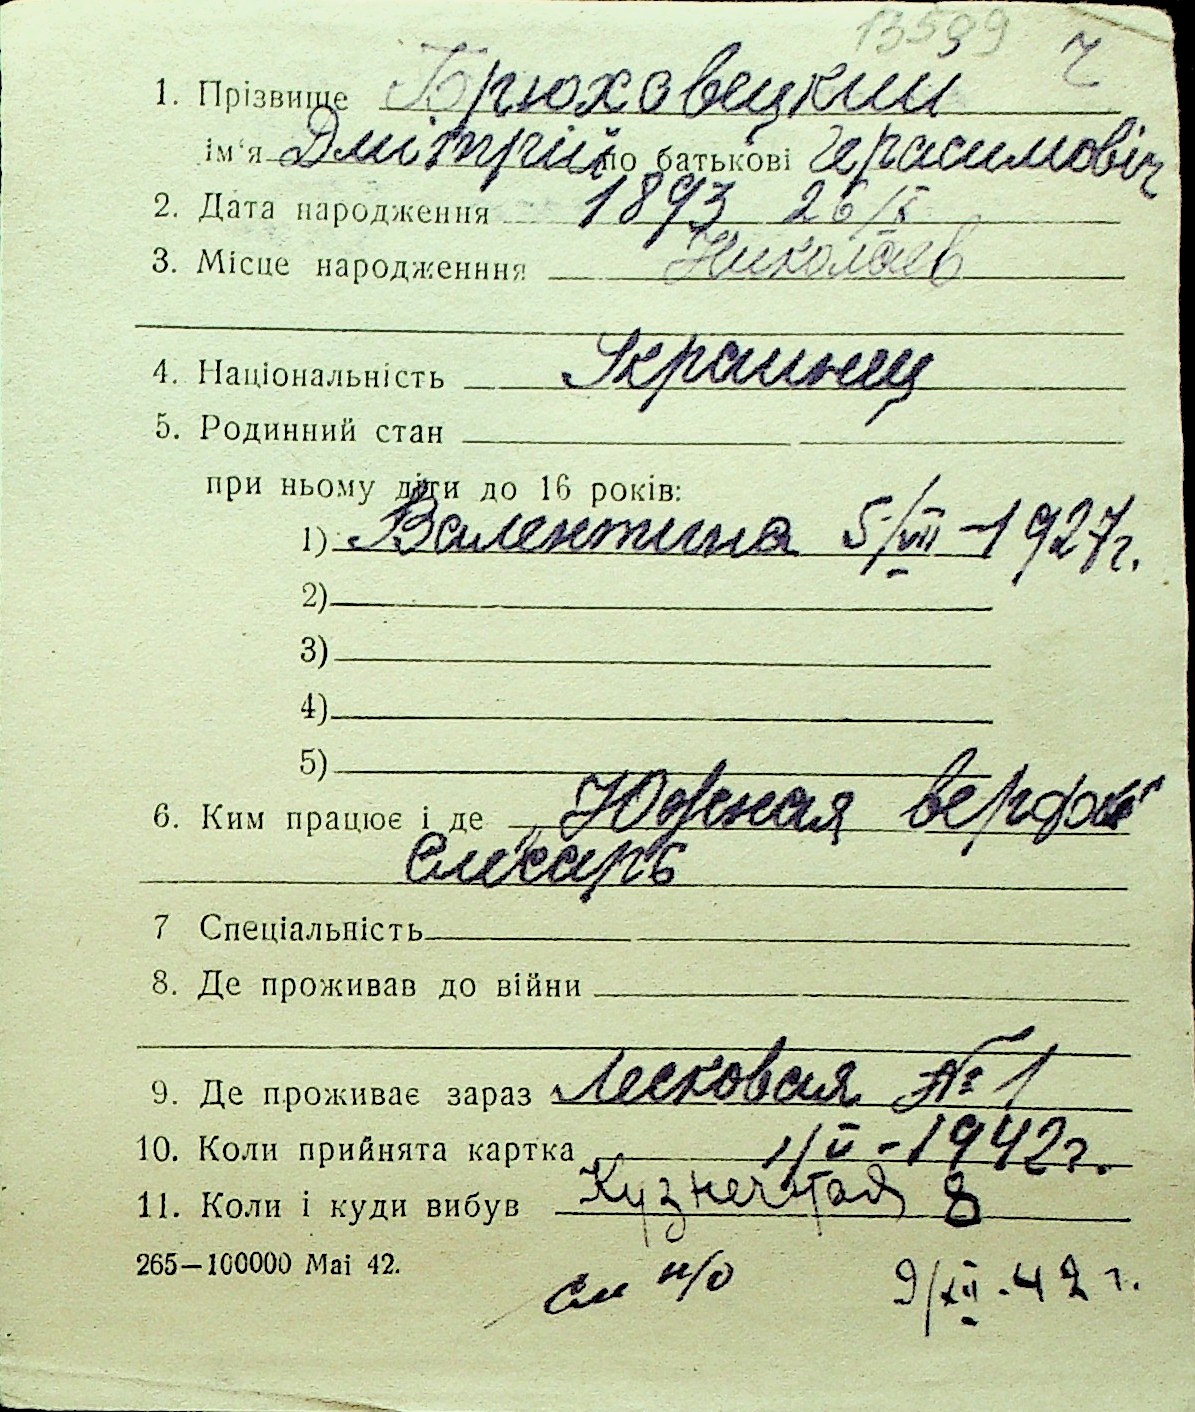 13599 ч
1. Прізвище Брюховецкий
ім'я Дмітрій по батькові Герасимовіч
2. Дата народження 1893 26/X
3. Місце народженння Николаев
4. Національність Украинец
5. Родинний стан
при ньому діти до 16 років:
1) Валентина 5/VII – 1927 г.
2)
3)
4)
5)
6. Ким працює і де Южная верфь
слесарь
7 Спеціальність
8. Де проживав до війни
9. Де проживає зараз Лесковая № 1
10. Коли прийнята картка 1/II - 1942 г.
11. Коли і куди вибув Кузнечная 8
265—100000 Mai 42.
см н/о 9/XII. 42 г.